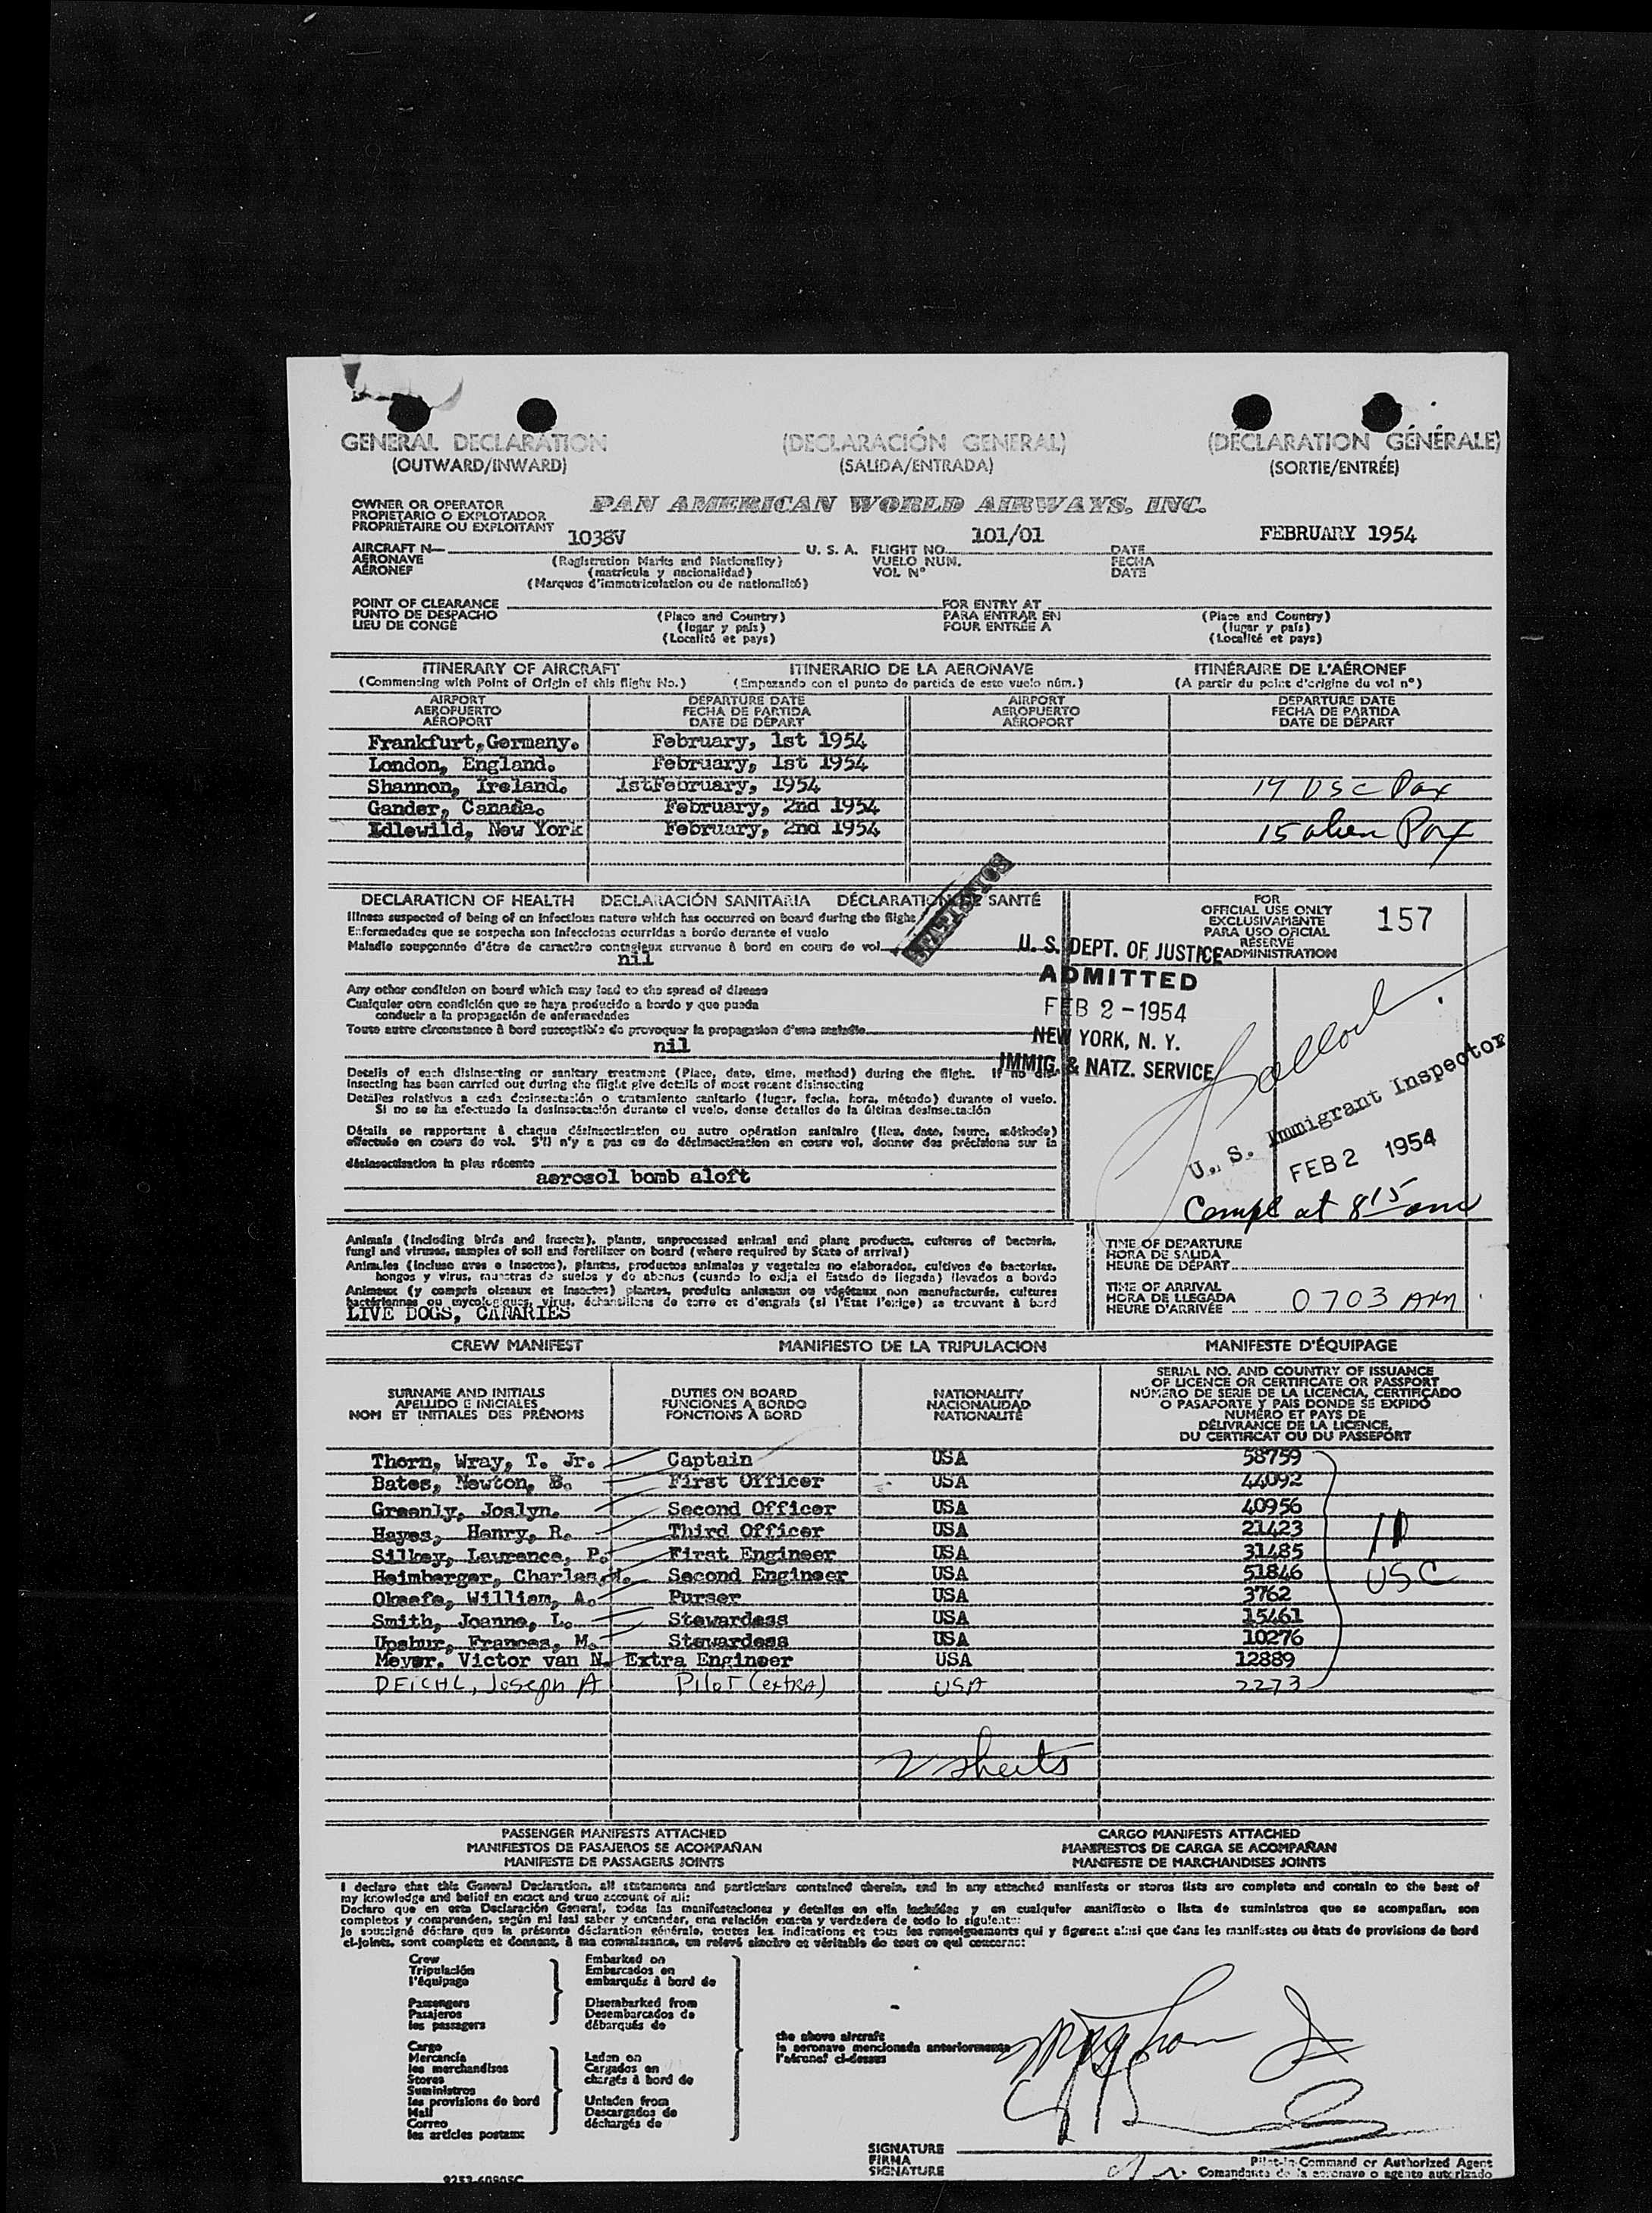 GENERAL DECLARATION (DECLARACIÓN GENERAL) (DÉCLARATION GÉNÉRALE)
(OUTWARD/INWARD) (SALIDA/ENTRADA) (SORTIE/ENTRÉE)
OWNER OR OPERATOR
PROPIETARIO O EXPLOTADOR
PROPRIÉTAIRE OU EXPLOITANT
PAN AMERICAN WORLD AIRWAYS, INC.
1038V 101/01 FEBRUARY 1954
AIRCRAFT N— U. S. A. FLIGHT NO. DATE
AERONAVE (Registration Marks and Nationality) VUELO NUM. FECHA
AÉRONEF (matrícula y nacionalidad) VOL N° DATE
(Marques d'immatriculation ou de nationalité)
POINT OF CLEARANCE FOR ENTRY AT
PUNTO DE DESPACHO (Place and Country) PARA ENTRAR EN (Place and Country)
LIEU DE CONGÉ (lugar y país) POUR ENTRÉE A (lugar y país)
(Localité et pays) (Localité et pays)
ITINERARY OF AIRCRAFT ITINERARIO DE LA AERONAVE ITINÉRAIRE DE L'AÉRONEF
(Commencing with Point of Origin of this flight No.) (Empezando con el punto de partida de este vuelo núm.) (A partir du point d'origine du vol n°)
AIRPORT DEPARTURE DATE AIRPORT DEPARTURE DATE
AEROPUERTO FECHA DE PARTIDA AEROPUERTO FECHA DE PARTIDA
AÉROPORT DATE DE DÉPART AÉROPORT DATE DE DÉPART
Frankfurt,Germany. February, 1st 1954
London, England. February, 1st 1954
Shannon, Ireland. 1stFebruary, 1954
Gander, Canada. February, 2nd 1954
Idlewild, New York February, 2nd 1954
USC Pax
15 alien Pax
DECLARATION OF HEALTH DECLARACIÓN SANITARIA DÉCLARATION DE SANTÉ
STATISTICS
Illness suspected of being of an infectious nature which has occurred on board during the flight
Enfermedades que se sospecha son infecciosas ocurridas a bordo durante el vuelo
Maladie soupçonnée d'être de caractère contagieux survenue à bord en cours de vol
nil
Any other condition on board which may lead to the spread of disease
Cualquier otra condición que se haya producido a bordo y que pueda
conducir a la propagación de enfermedades
Toute autre circonstance à bord susceptible de provoquer la propagation d'une maladie
nil
Details of each disinsecting or sanitary treatment (Place, date, time, method) during the flight. If no dis-
insecting has been carried out during the flight give details of most recent disinsecting
Detalles relativos a cada desinsectación o tratamiento sanitario (lugar, fecha, hora, método) durante el vuelo.
Si no se ha efectuado la desinsectación durante el vuelo, dense detalles de la última desinsectación
Détails se rapportant à chaque désinsectisation ou autre opération sanitaire (lieu, date, heure, méthode)
effectuée en cours de vol. S'il n'y a pas eu de désinsectisation en cours vol, donner des précisions sur la
désinsectisation la plus récente
aerosol bomb aloft
FOR
OFFICIAL USE ONLY
EXCLUSIVAMENTE
PARA USO OFICIAL
RÉSERVÉ
ADMINISTRATION
157
U. S. DEPT. OF JUSTICE
ADMITTED
FEB 2 - 1954
NEW YORK, N. Y.
IMMIG. & NATZ. SERVICE
U. S. Immigrant Inspector
FEB 2 1954
Compl at 8 15 am
Animals (including birds and insects), plants, unprocessed animal and plant products, cultures of bacteria,
fungi and viruses, samples of soil and fertilizer on board (where required by State of arrival)
Animales (incluso aves e insectos), plantas, productos animales y vegetales no elaborados, cultivos de bacterias,
hongos y virus, muestras de suelos y de abonos (cuando lo exija el Estado de llegada) llevados a bordo
Animaux (y compris oiseaux et insectes) plantes, produits animaux ou végétaux non manufacturés, cultures
bactériennes ou mycologiques, virus, échantillons de terre et d'engrais (si l'État l'exige) se trouvant à bord
LIVE DOGS, CANARIES
TIME OF DEPARTURE
HORA DE SALIDA
HEURE DE DÉPART
TIME OF ARRIVAL
HORA DE LLEGADA
HEURE D'ARRIVÉE 0703 AM
CREW MANIFEST MANIFIESTO DE LA TRIPULACION MANIFESTE D'ÉQUIPAGE
SURNAME AND INITIALS
APELLIDO E INICIALES
NOM ET INITIALES DES PRÉNOMS
DUTIES ON BOARD
FUNCIONES A BORDO
FONCTIONS À BORD
NATIONALITY
NACIONALIDAD
NATIONALITÉ
SERIAL NO. AND COUNTRY OF ISSUANCE
OF LICENCE OR CERTIFICATE OR PASSPORT
NÚMERO DE SERIE DE LA LICENCIA, CERTIFICADO
O PASAPORTE Y PAIS DONDE SE EXPIDÓ
NUMÉRO ET PAYS DE
DÉLIVRANCE DE LA LICENCE,
DU CERTIFICAT OU DU PASSEPORT
Thorn, Wray, T. Jr. Captain USA 58759
Bates, Newton, B. First Officer USA 44092
Greenly, Joslyn. Second Officer USA 40956
Hayes, Henry, R. Third Officer USA 21423
Silkey, Laurence, P. First Engineer USA 31485
Heimberger, Charles, Second Engineer USA 51846
Okeefe, William, A. Purser USA 3762
Smith, Joanne, L. Stewardess USA 15461
Upshur, Frances, M. Stewardess USA 10276
Meyer, Victor van N. Extra Engineer USA 12889
DEICHL, Joseph A Pilot (extra) USA 2273
11
USC
2 sheets
PASSENGER MANIFESTS ATTACHED CARGO MANIFESTS ATTACHED
MANIFIESTOS DE PASAJEROS SE ACOMPAÑAN MANIFIESTOS DE CARGA SE ACOMPAÑAN
MANIFESTE DE PASSAGERS JOINTS MANIFESTE DE MARCHANDISES JOINTS
I declare that this General Declaration, all statements and particulars contained therein, and in any attached manifests or stores lists are complete and contain to the best of
my knowledge and belief an exact and true account of all:
Declaro que en esta Declaración General, todas las manifestaciones y detalles en ella incluídas y en cualquier manifiesto o lista de suministros que se acompañan, son
completos y comprenden, según mi leal saber y entender, una relación exacta y verdadera de todo lo siguiente:
je soussigné déclare que la présente déclaration générale, toutes les indications et tous les renseignements qui y figurent ainsi que dans les manifestes ou états de provisions de bord
ci-joints, sont complets et donnent, à ma connaissance, un relevé sincère et véritable de tout ce qui concerne:
Crew Embarked on
Tripulación Embarcados en
l'équipage embarqués à bord de
Passengers Disembarked from
Pasajeros Desembarcados de
les passagers débarqués de
the above aircraft
la aeronave mencionada anteriormente
l'aéronef ci-dessus
Cargo
Mercancía Laden on
les merchandises Cargados en
Stores chargés à bord de
Suministros
les provisions de bord Unladen from
Mail Descargados de
Correo déchargés de
les articles postaux
SIGNATURE
FIRMA
SIGNATURE
Pilot-in-Command or Authorized Agent
Comandante de la aeronave o agente autorizado